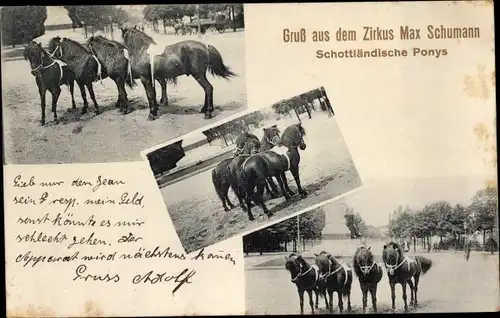 Gruß aus dem Zirkus Max Schumann
Schottländische Ponys
Gieb nur den Jean
sein P. resp. mein Geld,
sonst könnte es mir
schlecht gehen. der
Apparat wird nächstens kauen
Gruss Adolf